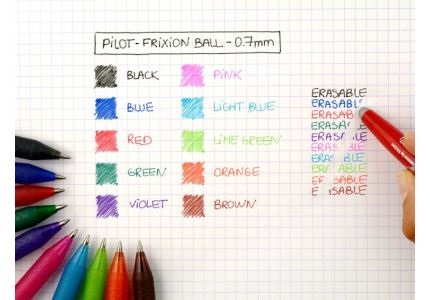 PILOT - FRIXION BALL - 0.7mm
BLACK
BLUE
RED
GREEN
VIOLET
PINK
LIGHT BLUE
LIME GREEN
ORANGE
BROWN
ERASABLE
ERASABL
ERASABL
ERASABL
ERASA LE
ERASABLE
ERA BLE
ERA ABLE
ER SABLE
E ISABLE